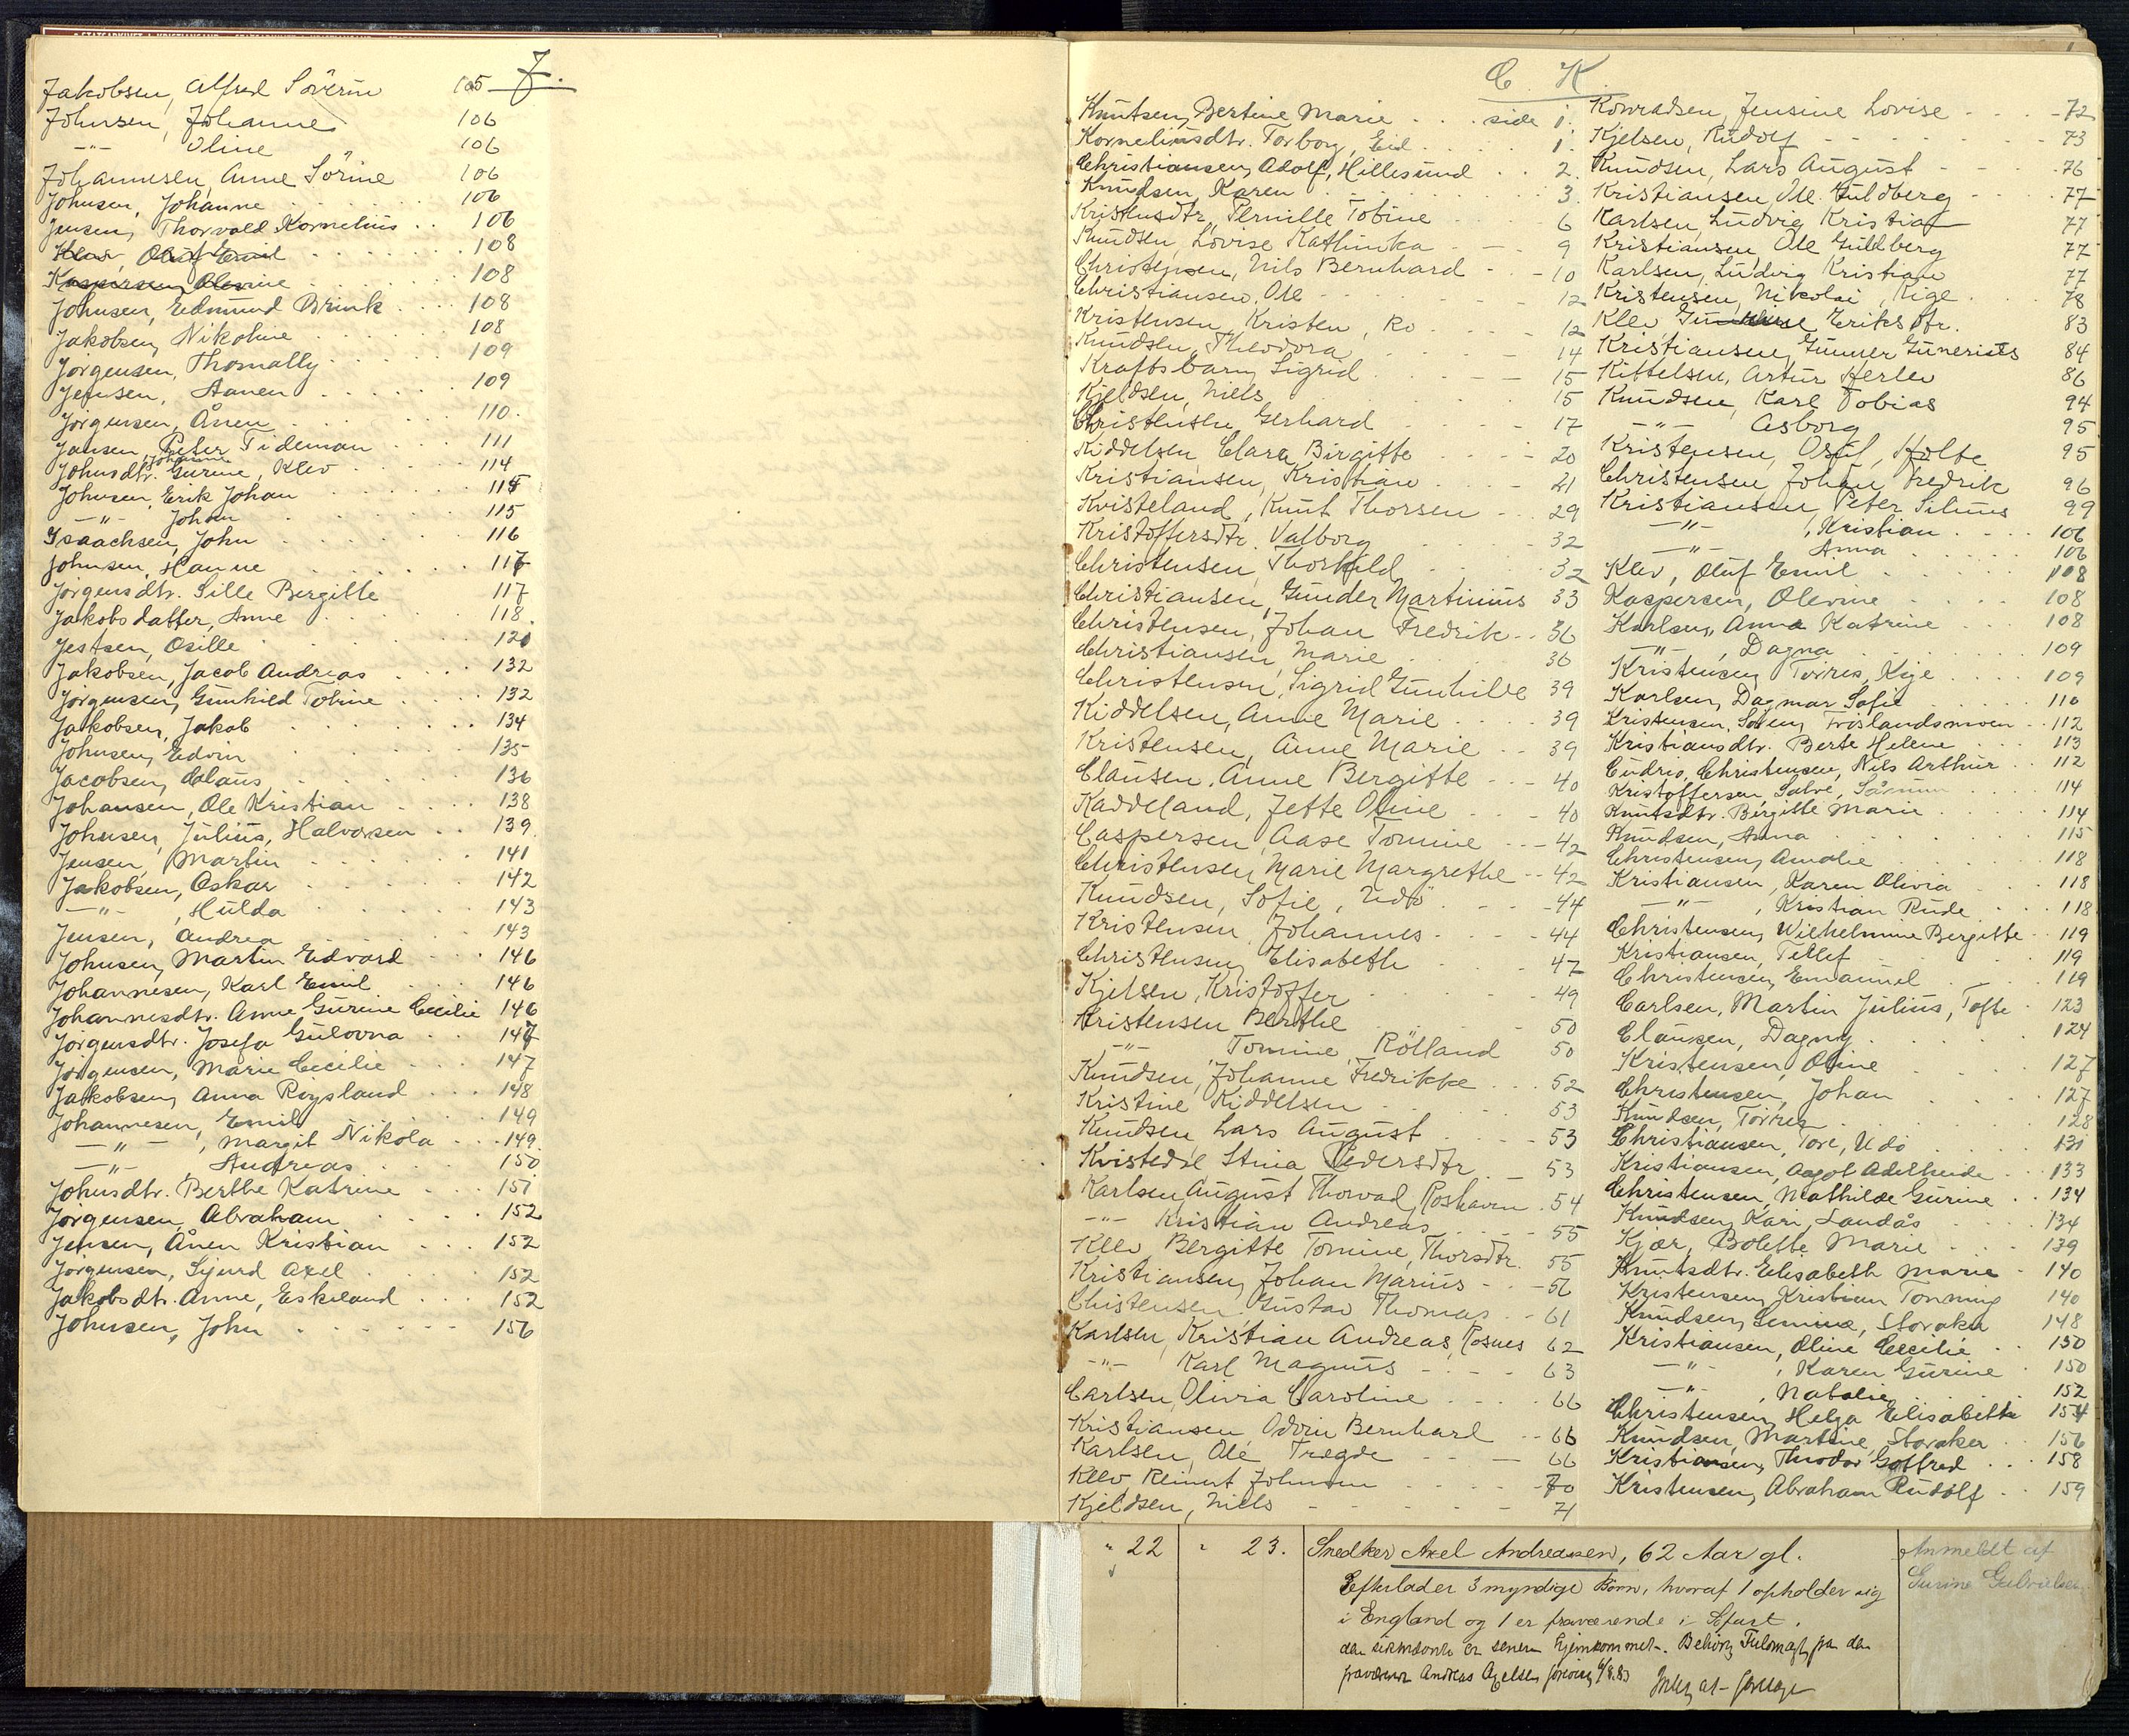 J.
Jakobsen, Alfred Söverin 105
Johnsen, Johanne 106
-"- Oline 106
Johannesen, Anne Sörine 106
Johnsen, Johanne 106
Jensen, Thorvald Kornelius 106
Klev, Oluf Emil 108
Kaspersen, Olevine 108
Johnsen, Edmund Brink 108
Jakobsen, Nikoline 108
Jörgensen, Thomally 109
Jensen, Aanen 109
Jörgensen, Ånen 110.
Jansen, Peter Tideman 111
Johnsdtr. Johanne Gurine, Klev 114
Johnsen, Erik Johan 115
-"- Johan 115
Isaachsen, John 116
Johnsen, Hanne 117
Jörgensdtr. Sille Bergitte 117
Jakobsdatter, Anne 118.
Jestsen, Osille 120
Jakobsen, Jacob Andreas 132
Jörgensen, Gunhild Tobine 132
Jakobsen, Jakob 134
Johnsen, Edvin 135
Jacobsen, Claus 136
Johansen, Ole Kristian 138
Johnsen, Julius, Halvorsen 139
Jensen, Martin 141
Jakobsen, Oskar 142
-"- , Hulda 143
Jensen, Andrea 143
Johnsen, Martin Edvard 146
Johannesen, Karl Emil 146
Johannesdtr. Anne Gurine Cecilie 146
Jörgensdtr. Josefa Gulovna 147
Jörgensen, Marie Cecilie 147
Jakobsen, Anna Röysland 148
Johannesen, Emil 149
-"- , Margit Nikola 149.
-"- , Andreas 150
Johnsdtr. Berthe Katrine 151
Jörgensen, Abraham 152
Jensen, Ånen Kristian 152
Jörgensen, Sjurd Axel 152
Jakobsdtr. Anne, Eskeland 152
Johnsen, John 156
C. K.
Knutsen, Bertine Marie side 1.
Korneliusdtr. Torborg, Eid 1.
Christiansen, Adolf, Hillesund 2.
Knudsen, Karen 3.
Kristensdtr, Pernille Tobine 6
Knudsen, Lovise Kathinka 9
Christensen, Nils Bernhard 10
Christiansen, Ole 12
Kristensen, Kristen, Ro 12
Knudsen, Theodora 14
Kraftsbarn, Sigrid 15
Kjeldsen, Niels 15
Christensen, Gerhard 17
Kiddelsen, Clara Birgitte 20
Kristiansen, Kristian 21
Kvisteland, Knut Thorsen 29
Kristoffersdtr. Valborg 32
Christensen, Thorkild 32
Christiansen, Gunder Martinius 33
Christensen, Johan Fredrik 36
Christiansen, Marie 36
Christensen, Sigrid Gunhilde 39
Kiddelsen, Anne Marie 39
Kristensen, Anne Marie 39
Clausen, Anne Bergitte 40
Kaddeland, Jette Oline 40
Caspersen, Aase Tomine 42
Christensen, Marie Margrethe 42
Knudsen, Sofie, Udö 44
Kristensen, Johannes 44
Christensen, Elisabeth 47
Kjelsen, Kristoffer 49
Kristensen Berthe 50
-"- Tomine, Rölland 50
Knudsen, Johanne Fredrikke 52
Kristine Kiddelsen 53
Knudsen Lars August 53
Kvistedal Stina Pedersdtr 53
Karlsen August Thorvad, Roshavn 54
-"- Kristian Andreas 55
Klev, Bergitte Tomine, Thorsdtr. 55
Kristiansen, Johan Marius 56
Christensen Gustav Thomas 61
Karlsen, Kristian Andreas, Rosnes 62
-"- Karl Magnus 63
Carlsen, Olivia Caroline 66
Kristiansen, Odvin Bernhard 66
Karlsen, Ole Tregde 66
Klev, Reinert Johnsen 70
Kjeldsen, Niels 71
Konradsen, Jensine Lovise 72
Kjelsen, Rudolf 73
Knudsen, Lars August 76
Kristiansen, Ole Guldberg 77
Karlsen, Ludvig Kristian 77
Kristiansen, Ole Guldberg 77
Karlsen, Ludvig Kristian 77
Kristensen, Nikolai, Kige 78
Klev Eriksdtr. 83
Kristiansen, Gunner Guneriets 84
Kittelsen, Artur Herlev 86
Knudsen, Karl Tobias 94
-"- Asborg 95
Kristensen, Osul, Holte 95
Christensen Johan Fredrik 96
Kristiansen, Peter Silius 99
-"- , Kristian 106
-"- Anna 106
Klev, Oluf Emil 108
Kaspersen, Olevine 108
Karlsen, Anna Katrine 108
-"- , Dagna 109
Kristensen, Torres, Kige 109
Karlsen, Dagmar Sofie 110
Kristensen, Sören, Tröslandsmoen 112
Kristiansdtr. Berte Helene 113
Cudrio, Christensen, Nils Arthur 112
Kristoffersen, Salve, 114
Knutsdtr. Birgitte Marie 114
Knudsen, Anna 115
Christensen, Amalie 118
Kristiansen, Karen Olivia 118
-"- , Kristian Rude 118
Christensen, Wilhelmine Bergitte 119
Kristiansen, Tellef 119
Christensen, Emanuel 119
Carlsen, Martin Julius, Tofte 123
Clausen, Dagny 124
Kristensen, Oline 127
Christensen, Johan 127
Knudsen, Torkel 128
Christiansen, Tore, Udö 131
Kristiansen, Aagot Adelheide 133
Christensen, Mathilde Gurine 134
Knudsen, Kari, Landås 134
Kjær, Bolette Marie 139
Knutsdtr. Elisabeth Marie 140
Kristensen, Kristian Tonning 140
Knudsen, Lemine, Storaker 148
Kristiansen, Oline Cecilie 150
-"- , Karen Gurine 150
-"- , Natalie 152
Christensen, Helga Elisabeth 154
Knudsen, Martine, Storaker 156
Kristiansen, Thodor Gotfred 158
Kristensen, Abraham Rudolf 159
" 22 " 23. Snedker Axel Andreasen, 62 Aar gl.
Efterlader 3 myndige Børn, hvoraf 1 opholder sig
i England og 1 er fraværende i Søfart.
den sidstnævnte er senere hjemkommet. Behörig Fuldmagt fra den
fraværende Andreas Axelsen 6/8.83
Intet at foretage
Anmeldt af
Surine Gabrielsen